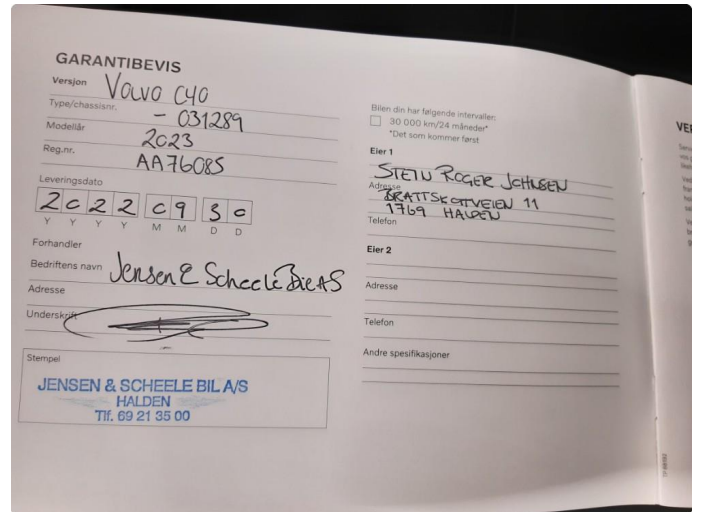 GARANTIBEVIS
Versjon Volvo C40
Type/chassisnr. - 031289
Modellår 2023
Reg.nr. AA76085
Leveringsdato
2022 09 30
Y Y Y Y M M D D
Forhandler
Bedriftens navn Jensen & Scheele Bil AS
Adresse
Underskrift
Stempel
JENSEN & SCHEELE BIL A/S
HALDEN
Tlf. 69 21 35 00
Bilen din har følgende intervaller:
30 000 km/24 måneder*
*Det som kommer først
Eier 1
STEIN ROGER JOHNSEN
Adresse
BRATTSKOTVEIEN 11
1769 HALDEN
Telefon
Eier 2
Adresse
Telefon
Andre spesifikasjoner